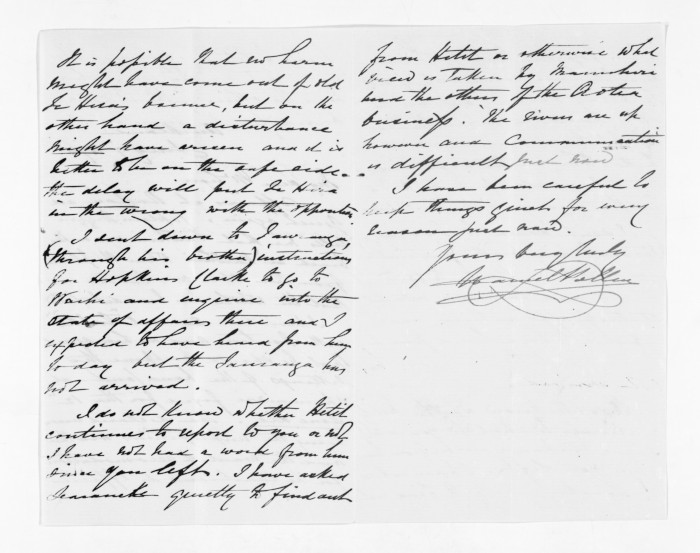 It is possible that no harm
might have come out of old
Te Hira's banner, but on the
other hand a disturbance
might have arisen and it is
better to be on the safe side –
the delay will put Te Hira
in the wrong with the opposition
I sent down to Tauranga
(through his brother) instructions
for Hopkins Clarke to go to
and inquire into the
state of affairs there and I
expected to have heard from him
to day but the Tauranga has
not arrived.
I do not know whether Hetit
continues to report to you or not
I have not had a word from him
since you left. I have asked
quietly to find out
from Hetit or otherwise what
is taken by
and the others of the Aotea
business. The rivers are up
however and communication
is difficult just now
I have been careful to
keep things quiet for every
reason just now.
Yours very truly
Daniel Pollen